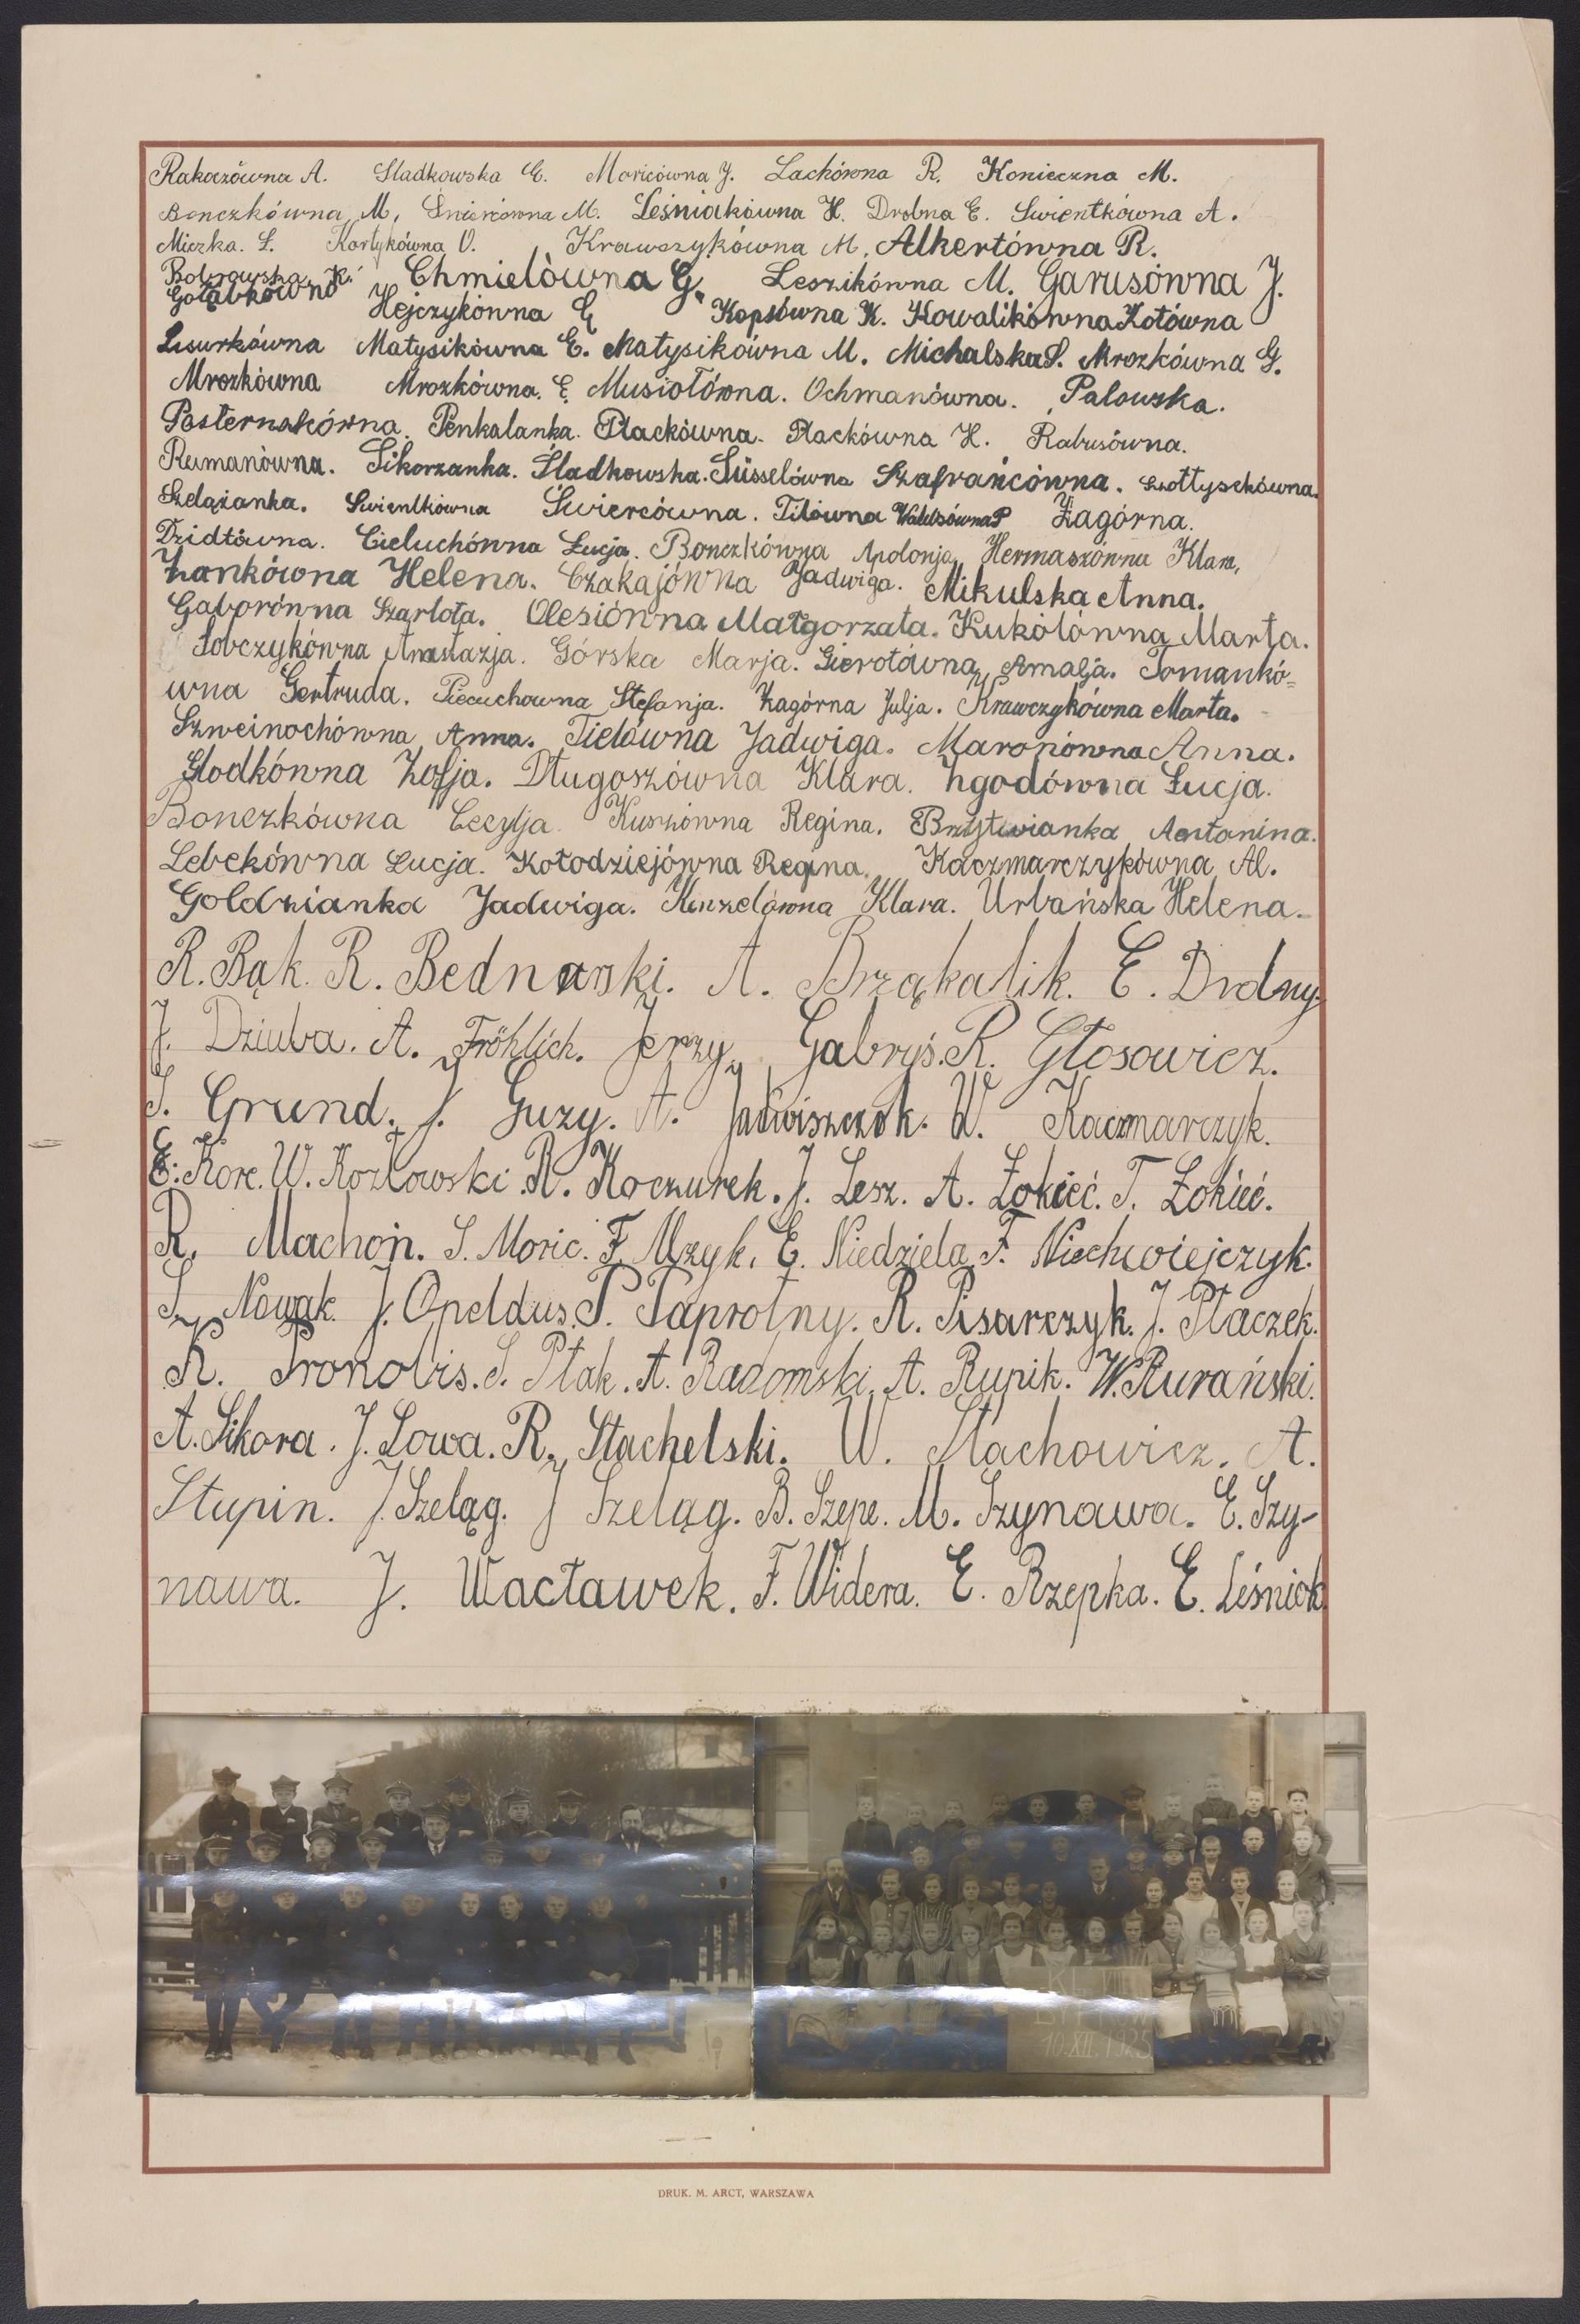 Rakoczówna A. Sladkowska E. Moricówna J. Lachówna R. Konieczna M.
Bonczkówna M, Śniercówna M. Leśniakówna H. Drobna E. Swientkówna A.
Miczka. Ł. Kortykówna O. Krawszykówna M, Alkertówna R.
Bobrowska K. Chmielówna G. Leszikówna M. Garusówna J.
Gołąbkówna Hejczykówna E Kopsówna K. Kowalikówna Kotówna
Lisurkówna Matysikówna E. Matysikówna M. Michalska S. Mrozkówna G.
Mrozkówna Mrozkówna. E Musiołówna. Ochmanówna. Palowska.
Pasternakówna. Penkalanka. Płackówna. Płackówna H. Rabusówna.
Rumanówna. Sikorzanka. Śladkowska. Süsselówna Szafrańcówna. Szołtysekówna.
Szelążanka. Swientkówna Świercówna. Tilówna P Zagórna.
Dzidtówna. Cieluchówna Łucja. Bonczkówna Apolonja, Hermaszówna Klara,
Zankówna Helena. Czakajówna Jadwiga. Mikulska Anna.
Gaborówna Szarlota. Olesiówna Małgorzata. Kukólówna Marta.
Sobczykówna Anastazja. Górska Marja. Gierotówna, Amalja. Tomankó=
wna Gertruda. Piecuchowna Stefanja. Zagórna Julja. Krawczykówna Marta.
Szweinochówna Anna. Tielówna Jadwiga. Maronówna Anna.
Głodkówna Zofja. Długoszówna Klara. Zgodówna Łucja.
Bonczkówna Cecylja. Kuszówna Regina. Brzytwianka Antonina.
Lebekówna Łucja. Kołodziejówna Regina. Kaczmarczykówna Al.
Goldzianka Jadwiga. Kinzelówna Klara. Urbańska Helena.
R. Bąk. R. Bednarski. A. Brząkalik. E. Drdny.
J. Dziuba. A. Fröhlich. Jerzy Gabryś. R. Głosowicz.
S. Grund. J. Guzy. A. Jadwiszczok. W. Kaczmarczyk.
E. Korc. W. Kozłowski. R. Koczurek. J. Lesz. A. Łokieć. T. Łokieć.
R. Machoń. S. Moric. F. Mzyk. E. Niedziela F. Niechwiejczyk.
S. Nowak. J. Opeldus. P. Paprotny. R. Pisarczyk. J. Płaczek.
K. Pronobis. S. Ptak. A. Radomski. A. Rupik. W. Rurański.
A. Sikora. J. Sowa. R. Stachelski. W. Stachowicz. A.
Stupin. J. Szeląg. J Szeląg. B. Szepe. M. Szynawa. E. Szy-
nawa. J. Wacławek. F. Widera. E. Rzepka. E. Leśniok.
KL. VII
10.XII.1925
DRUK. M. ARCT, WARSZAWA